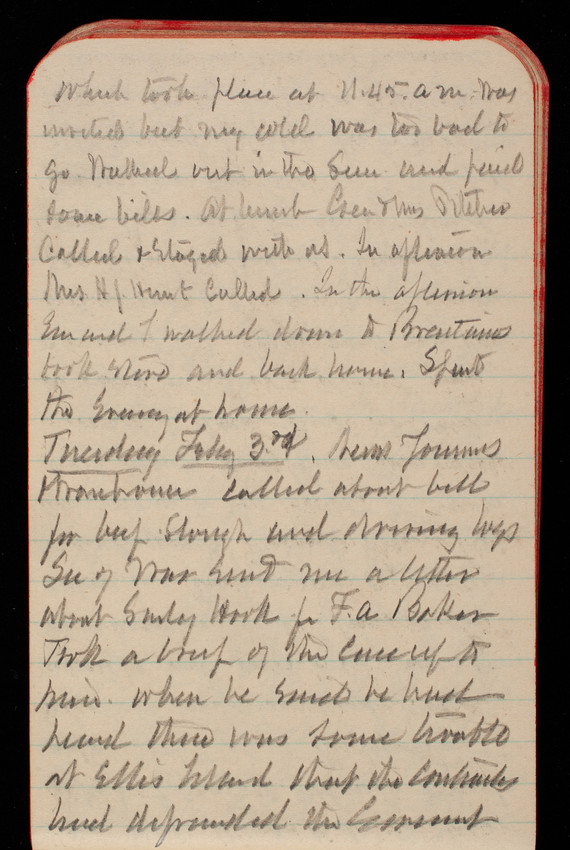 which took place at 11.45. a m. Was
invited but my cold was too bad to
go. Walked out in the Sun and paid
some bills. At lunch Genl & Mrs
Called & Stayed with us. In afternoon
Mrs H J Hunt Called. In the afternoon
Em and I walked down to Brentanos
book store and back home. Spent
the Evening at home.
Tuesday Feby 3rd.
called about bill
for beef Slough and driving logs
Sec of War Send me a letter
about Sandy Hook for F. A Baker
Took a brief of the Case up to
him. when he Said he had
heard there was some trouble
at Ellis Island that the Contractors
had defrauded the Goverment